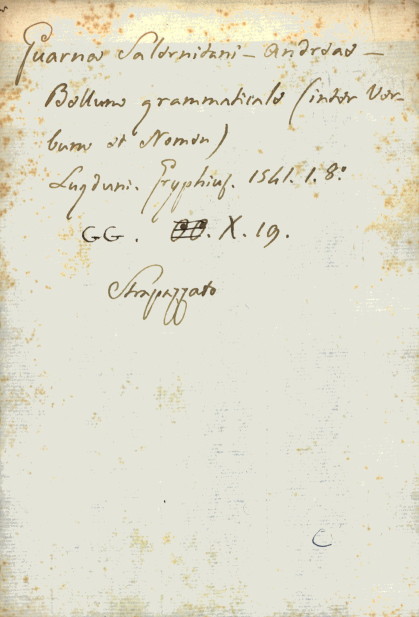 Guarnae Salernitani - Andreae -
Bellum grammaticale (inter Ver-
bum et Nomen)
Lugduni. Gryphius. 1541. 1. 8.°
GG. X. 19.
Strapazzato
C